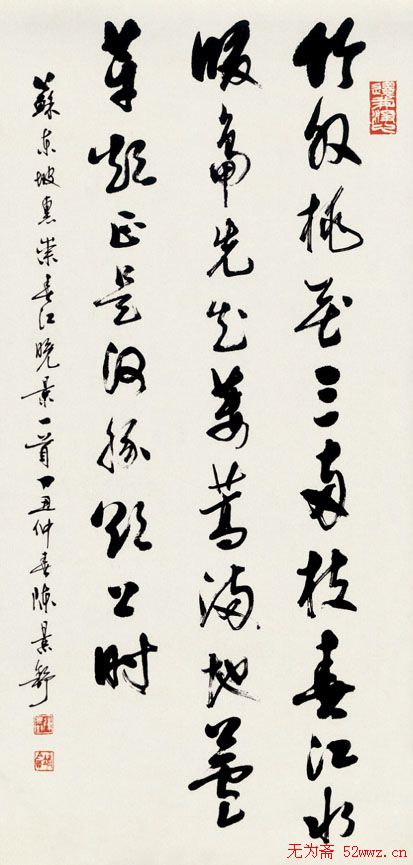 竹外桃花三兩枝春江水
暖鴨先知蔞蒿滿地蘆
芽短正是河豚欲上時
蘇東坡惠崇春江晚景一首丁丑仲春陳景舒
无为斋 52wwz.cn